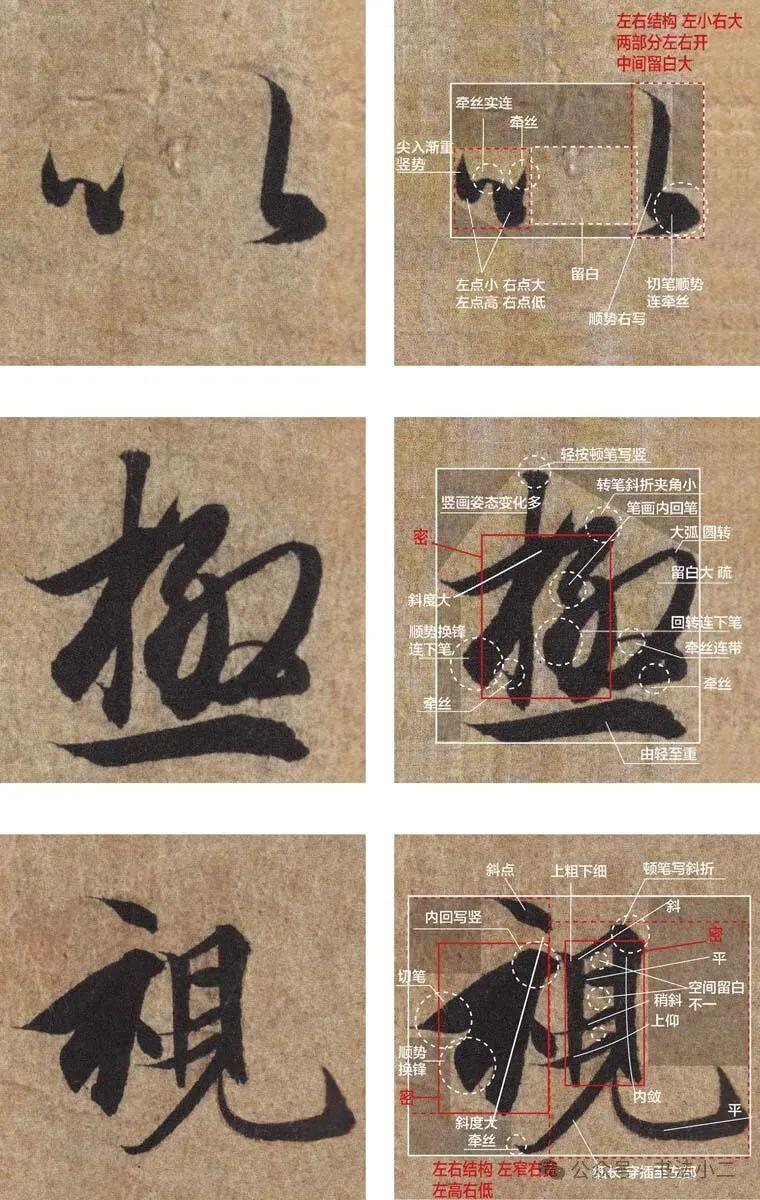 以
左右结构 左小右大
两部分左右开
中间留白大
牵丝实连
牵丝
尖入渐重
竖势
左点小 右点大
左点高 右点低
留白
切笔顺势
连牵丝
顺势右写
極
轻按顿笔写竖
竖画姿态变化多
转笔斜折夹角小
笔画内回笔
密
大弧 圆转
留白大 疏
斜度大
顺势换锋
连下笔
回转连下笔
牵丝连带
牵丝
牵丝
由轻至重
視
斜点
上粗下细
顿笔写斜折
内回写竖
斜
密
平
切笔
空间留白
不一
稍斜
上仰
顺势
换锋
密
内敛
斜度大
牵丝
平
左右结构 左窄右宽
左高右低
穿插至左部
公众号
小二